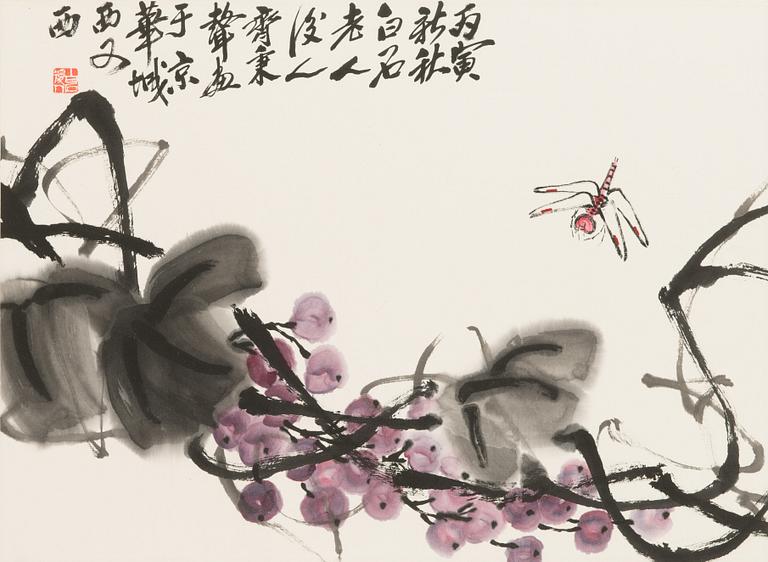 丙寅
新秋
白石
老人
後人
齊秉
聲畫
于京
華城
西又
西